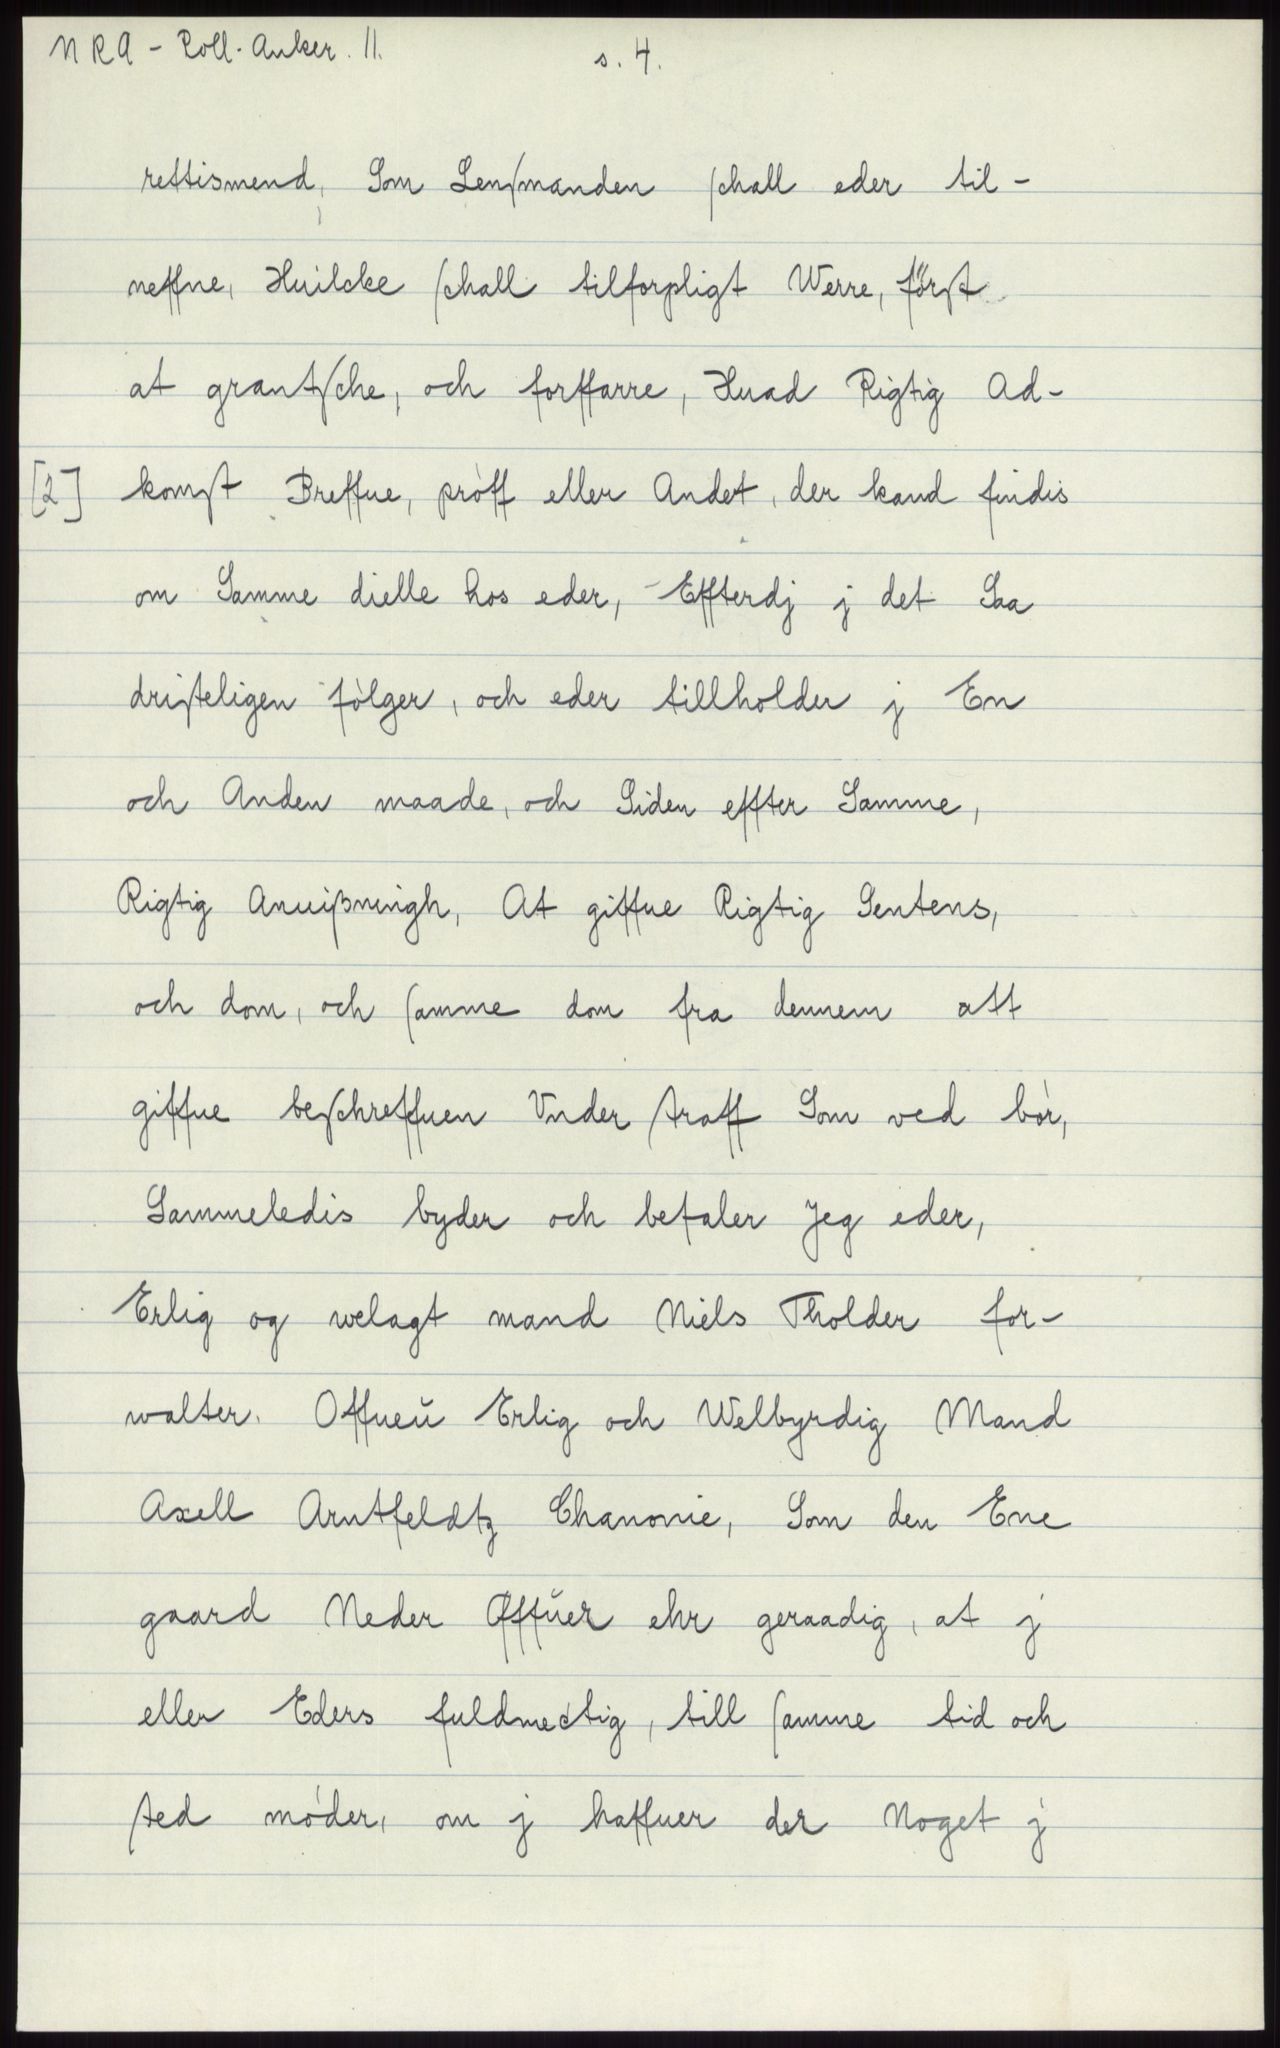 NRA - Koll. Anker. 11. s. 4.
rettismend, Som Lensmanden schall eder til-
neffne, Huilcke schall tilforpligt Werre, först
at grantsche, och forffarre, Huad Rigtig Ad-
[2] komst Breffue, próff eller Andet, der kand findis
om Samme dielle hos eder, Effterdj j det Saa
dristeligen fólger, och eder tillholder j En
och Anden maade, och Siden effter Samme,
Rigtig Anuißningh, At giffue Rigtig Sentens,
och dom, och samme dom fra dennem att
giffue beschreffuen Vnder straff Som ved bór,
Sammeledis byder och befaler Jeg eder,
Erlig og welagt mand Niels Tholder for-
walter. Offueŭ Erlig och Welbyrdig Mand
Axell Arntfeldtz Chanonie, Som den Ene
gaard Neder Øffŭer ehr geraadig, at j
eller Eders fuldmectig, till samme tid och
sted móder, om j haffuer der Noget j